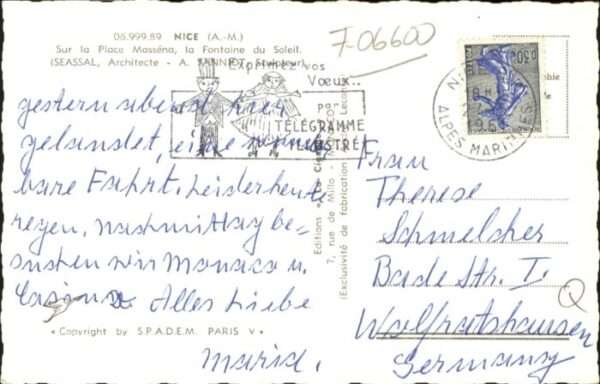 06.999.89 NICE (A.-M.)
Sur la Place Masséna, la Fontaine du Soleil.
(SEASSAL, Architecte - A. JANNIOT, Sculpteur)
7-06600
Exprimez vos
Vœux...
par
TÉLÉGRAMME
ILLUSTRÉ
0.30
NICE
ALPES MARITIMES
gestern abend hier
gelandet, eine wunder
bare Fahrt. Leider heute
regen, nachmittag be=
suchen wir Monaco u.
Casino. Alles Liebe
Maria.
Copyright by S.P.A.D.E.M. PARIS V
Editions « La Cigogne »
7, rue de Millo - MONACO
(Exclusivité de fabrication
Frau
Therese
Schmelcher
Bade Str. I
Q
Wolfratshausen
Germany